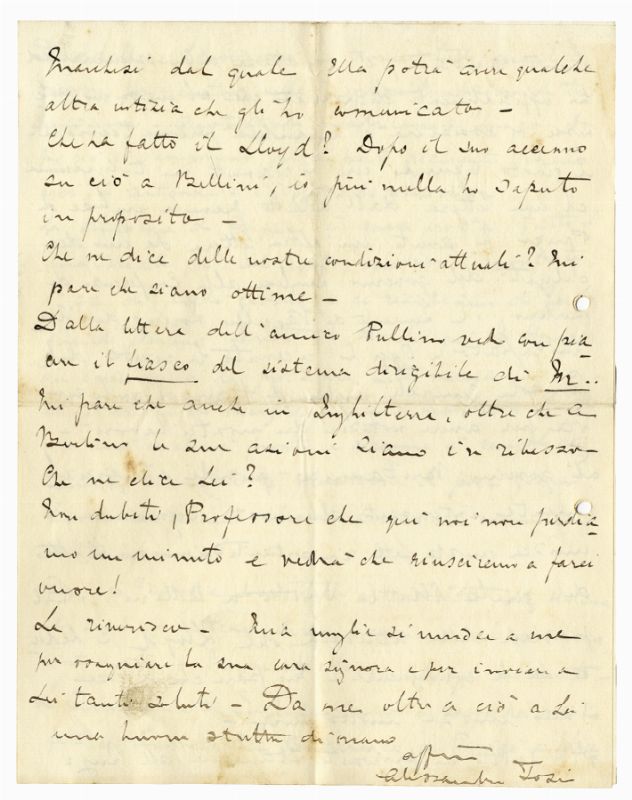 Marchesi dal quale Ella potrà avere qualche
altra notizia che gli ho comunicato –
Che ha fatto il Lloyd? Dopo il suo accenno
su ciò a Bellini, io più nulla ho saputo
in proposito –
Che ne dice delle nostre condizioni attuali? Mi
pare che siano ottime –
Dalla lettera dell'amico Pullino vedo con pia-
cere il fiasco del sistema dirigibile di M..
Mi pare che anche in Inghilterra, oltre che a
Berlino le sue azioni siano in ribasso –
Che ne dice Lei?
Non dubiti, Professore che qui noi non perdia-
mo un minuto e vedrà che riusciremo a farci
onore!
La riverisco – Mia moglie si unisce a me
per ossequiare la sua cara signora e per inviare a
Lei tanti saluti – Da me oltre a ciò a Lei
una buona stretta di mano
aff.mo
Alessandro Tosi